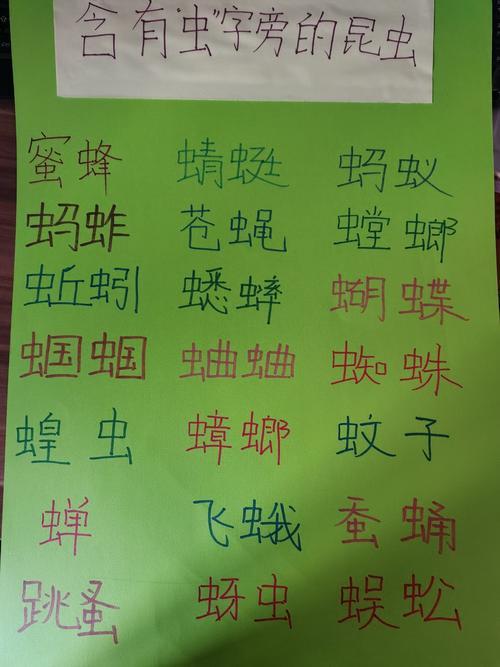 含有"虫"字旁的昆虫
蜜蜂 蜻蜓 蚂蚁
蚂蚱 苍蝇 螳螂
蚯蚓 蟋蟀 蝴蝶
蝈蝈 蛐蛐 蜘蛛
蝗虫 蟑螂 蚊子
蝉 飞蛾 蚕蛹
跳蚤 蚜虫 蜈蚣